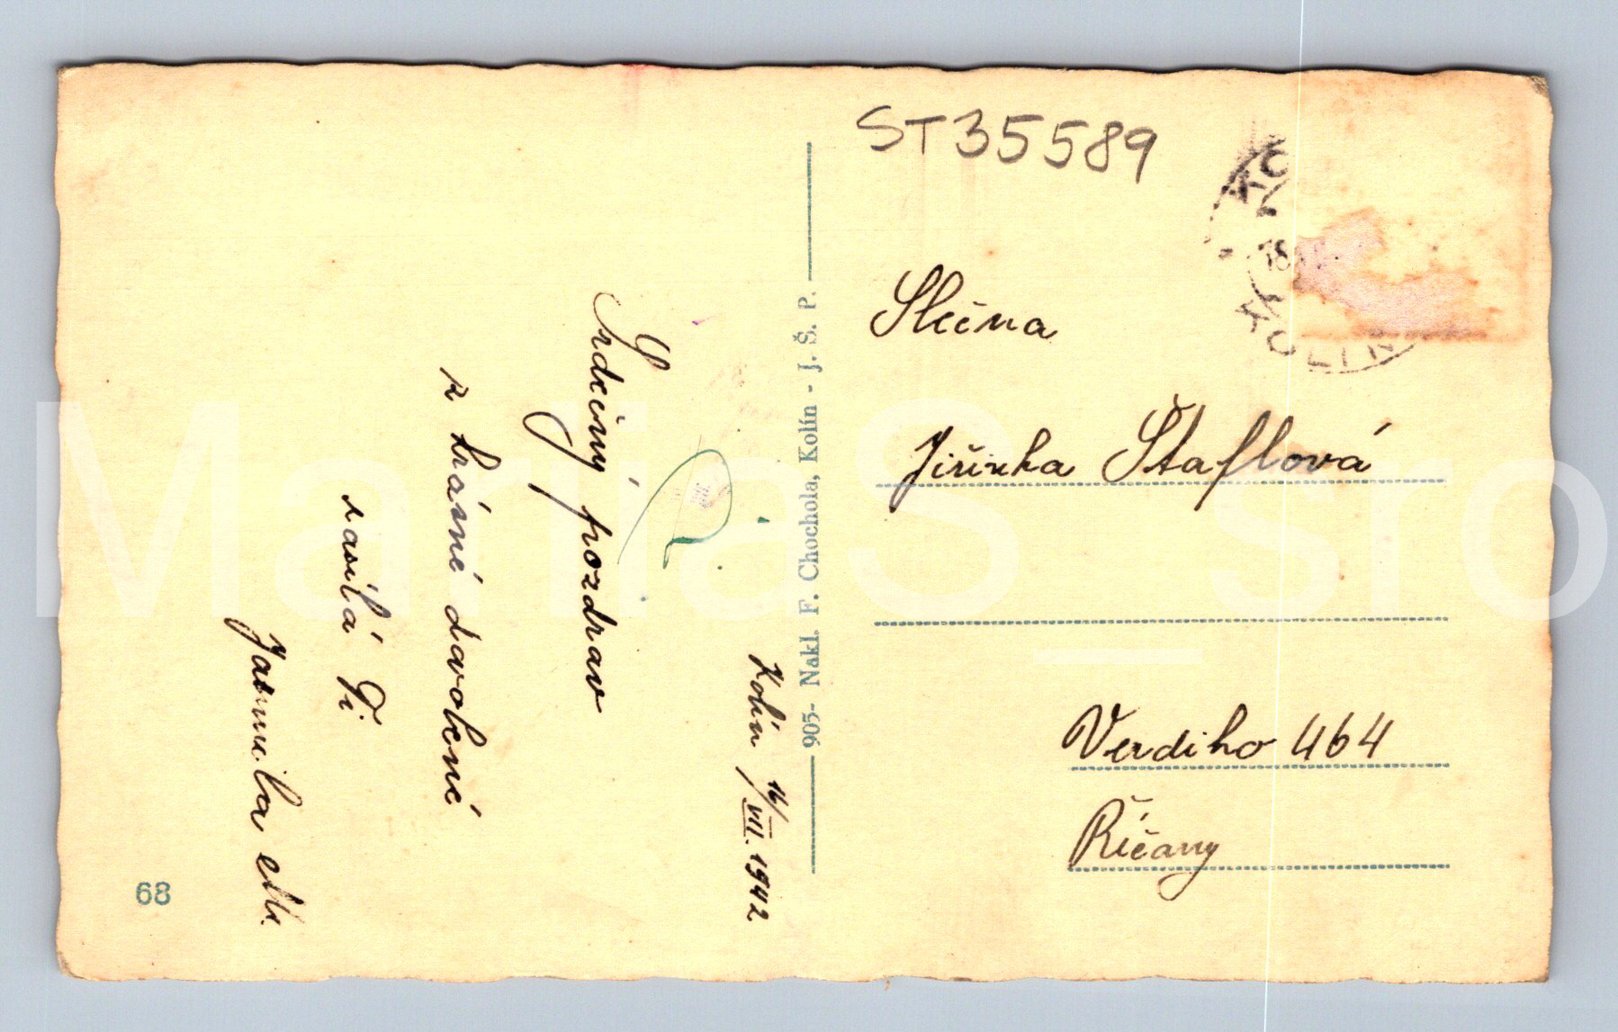 ST35589
KOLÍN
Kolín 16/VII. 1942
Srdečný pozdrav
z krásné dovolené
zasílá Ti
Jarmila M.
68
905- Nakl. F. Chochola, Kolín - J. Š. P.
Slečna
Jiřinka Štaflová
Verdiho 464
Říčany
MariaS_sro